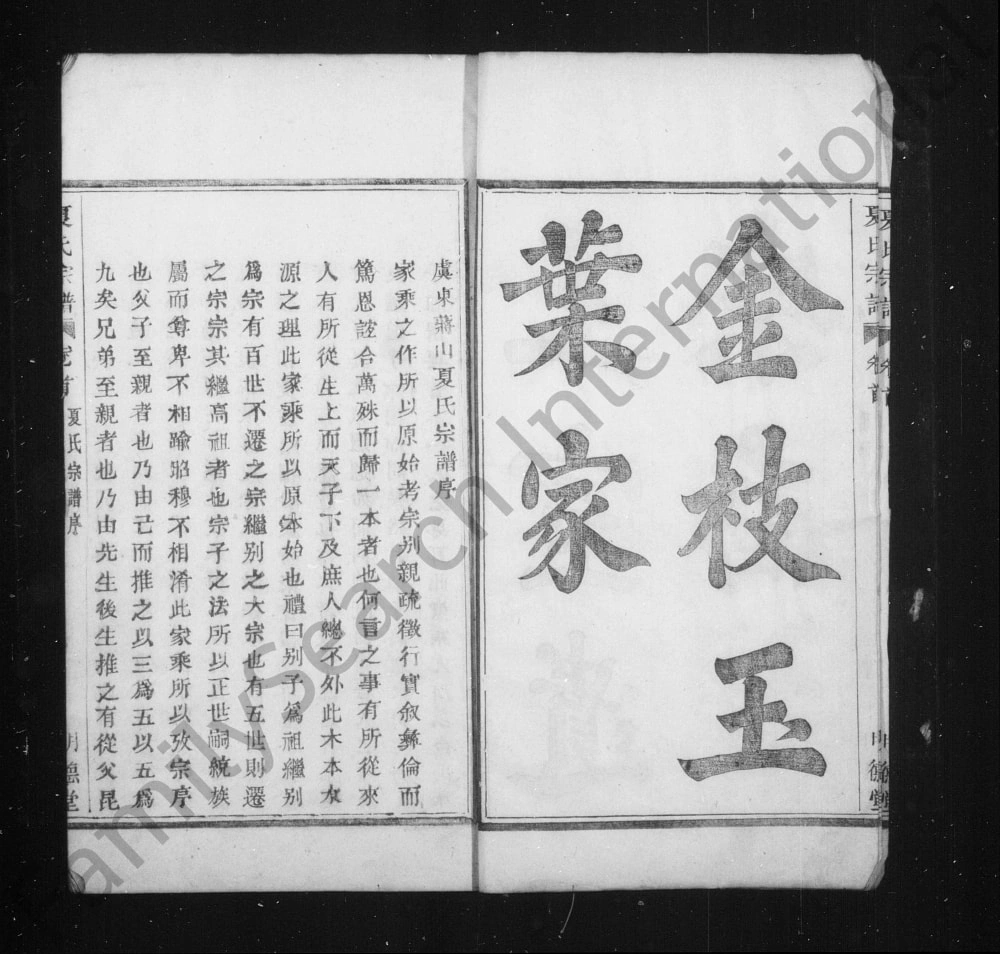 夏氏宗譜
卷首
明德堂
金枝玉
葉家
虞東蔣山夏氏宗譜序
家乘之作所以原始考宗別親疏徵行實敘彝倫而
篤恩誼合萬殊而歸一本者也何言之事有所從來
人有所從生上而天子下及庶人總不外此木本水
源之理此家乘所以原本始也禮曰別子爲祖繼別
爲宗有百世不遷之宗繼别之大宗也有五世則遷
之宗宗其繼高祖者也宗子之法所以正世嗣統族
屬而尊卑不相踰昭穆不相淆此家乘所以攷宗序
也父子至親者也乃由己而推之以三爲五以五爲
九矣兄弟至親者也乃由先生後生推之有從父昆
夏氏宗譜
卷首
夏氏宗譜序
明德堂
FamilySearch International